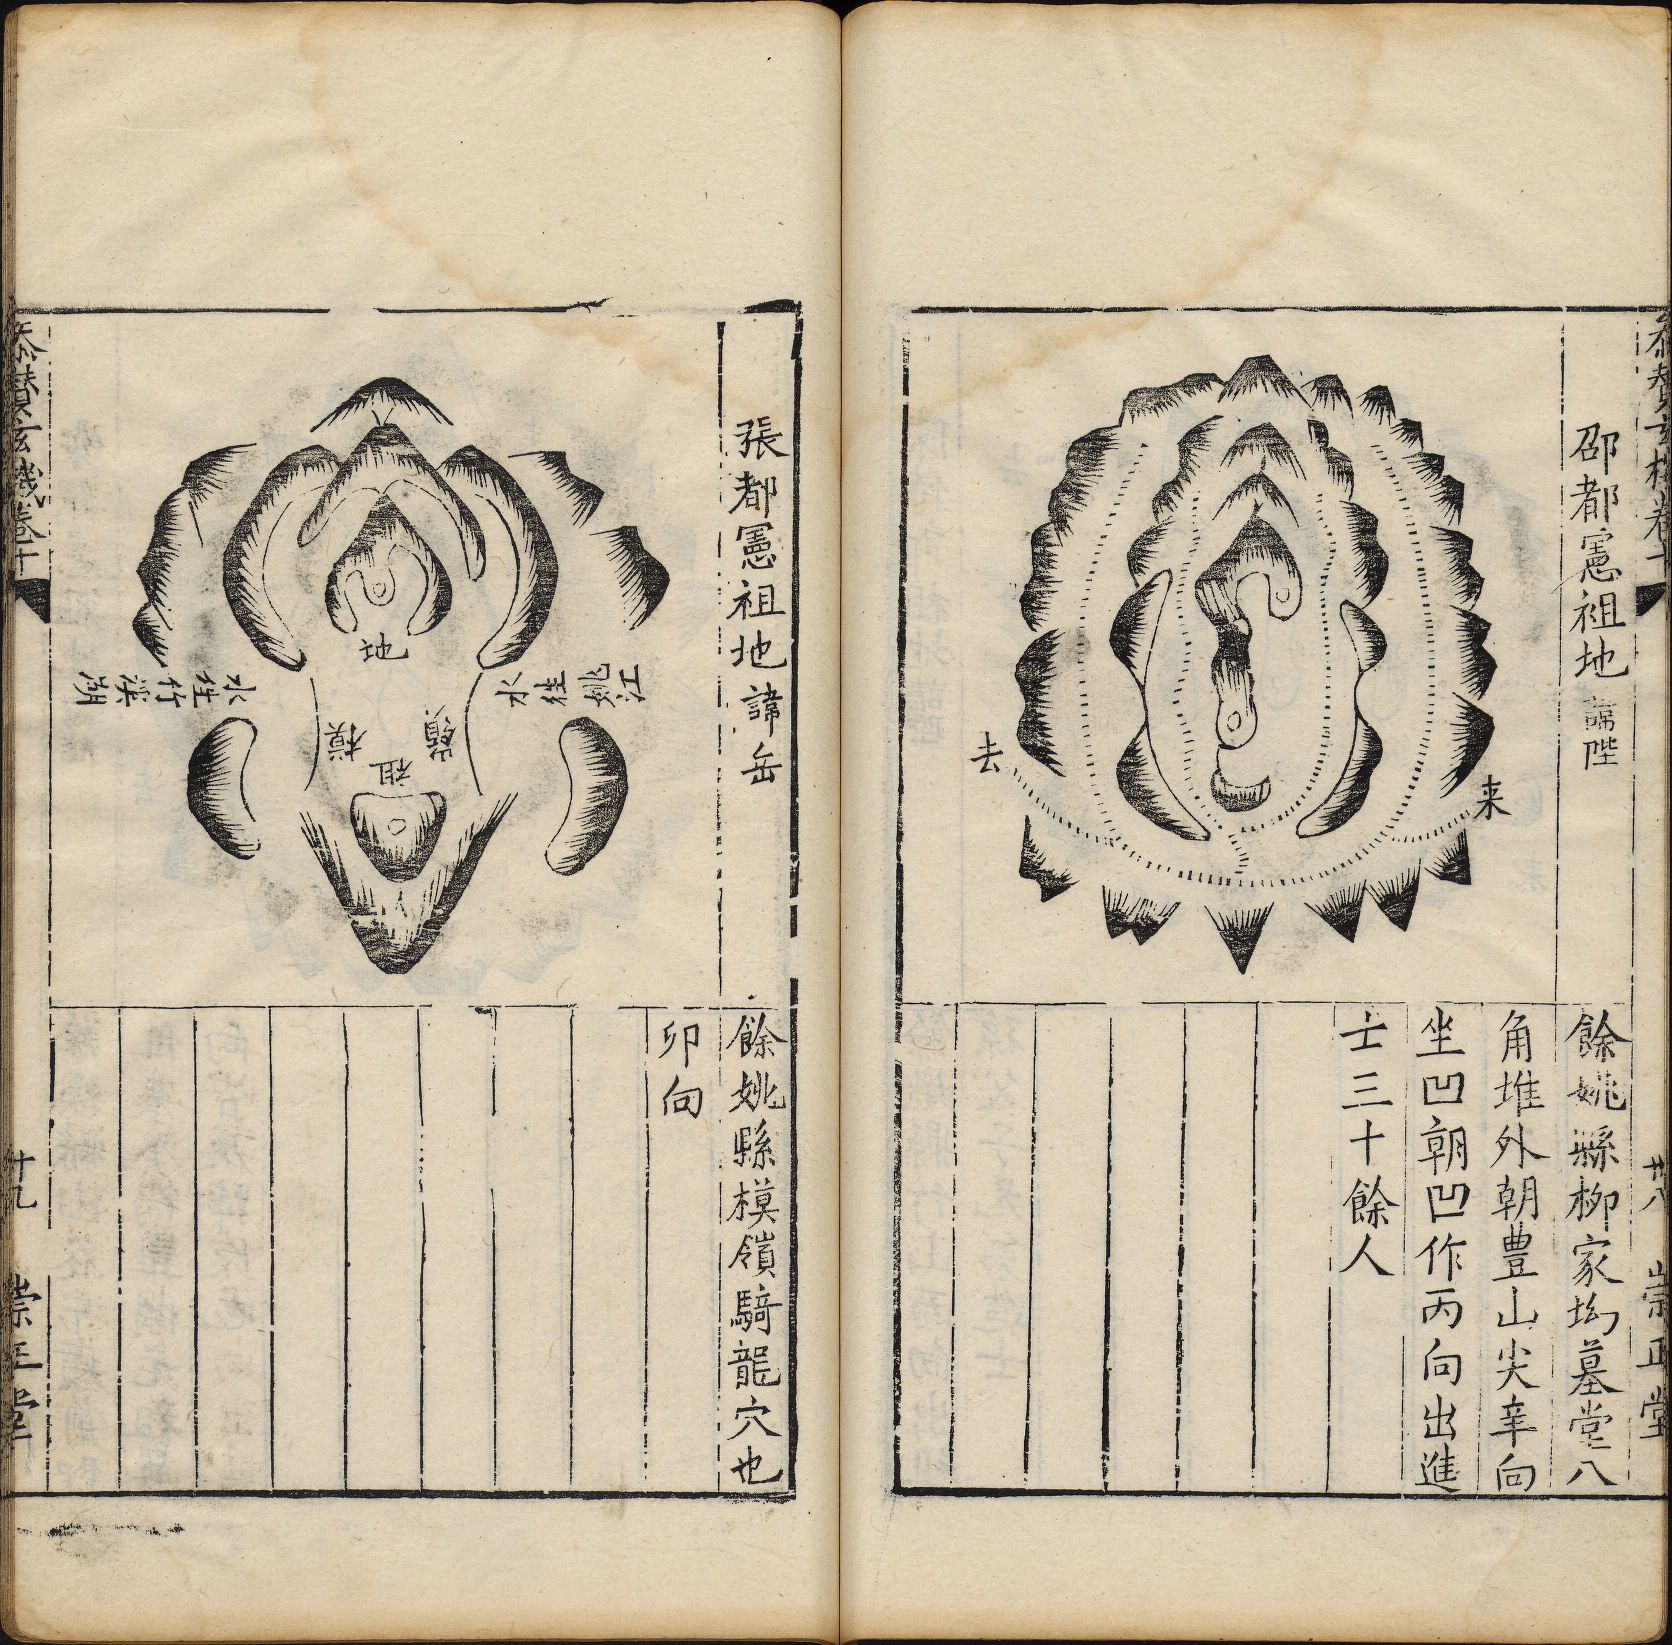 邵都憲祖地 諱陛
来
去
餘姚縣栁家㘭墓堂八
角堆外朝豊山尖辛向
坐凹朝凹作丙向出進
士三十餘人
卄八
崇正堂
張都憲祖地 諱岳
江姚徃水
水徃竹溪湖
地
模嶺
祖
餘姚縣模嶺騎龍穴也
卯向
玄機卷十
卄九
崇正堂